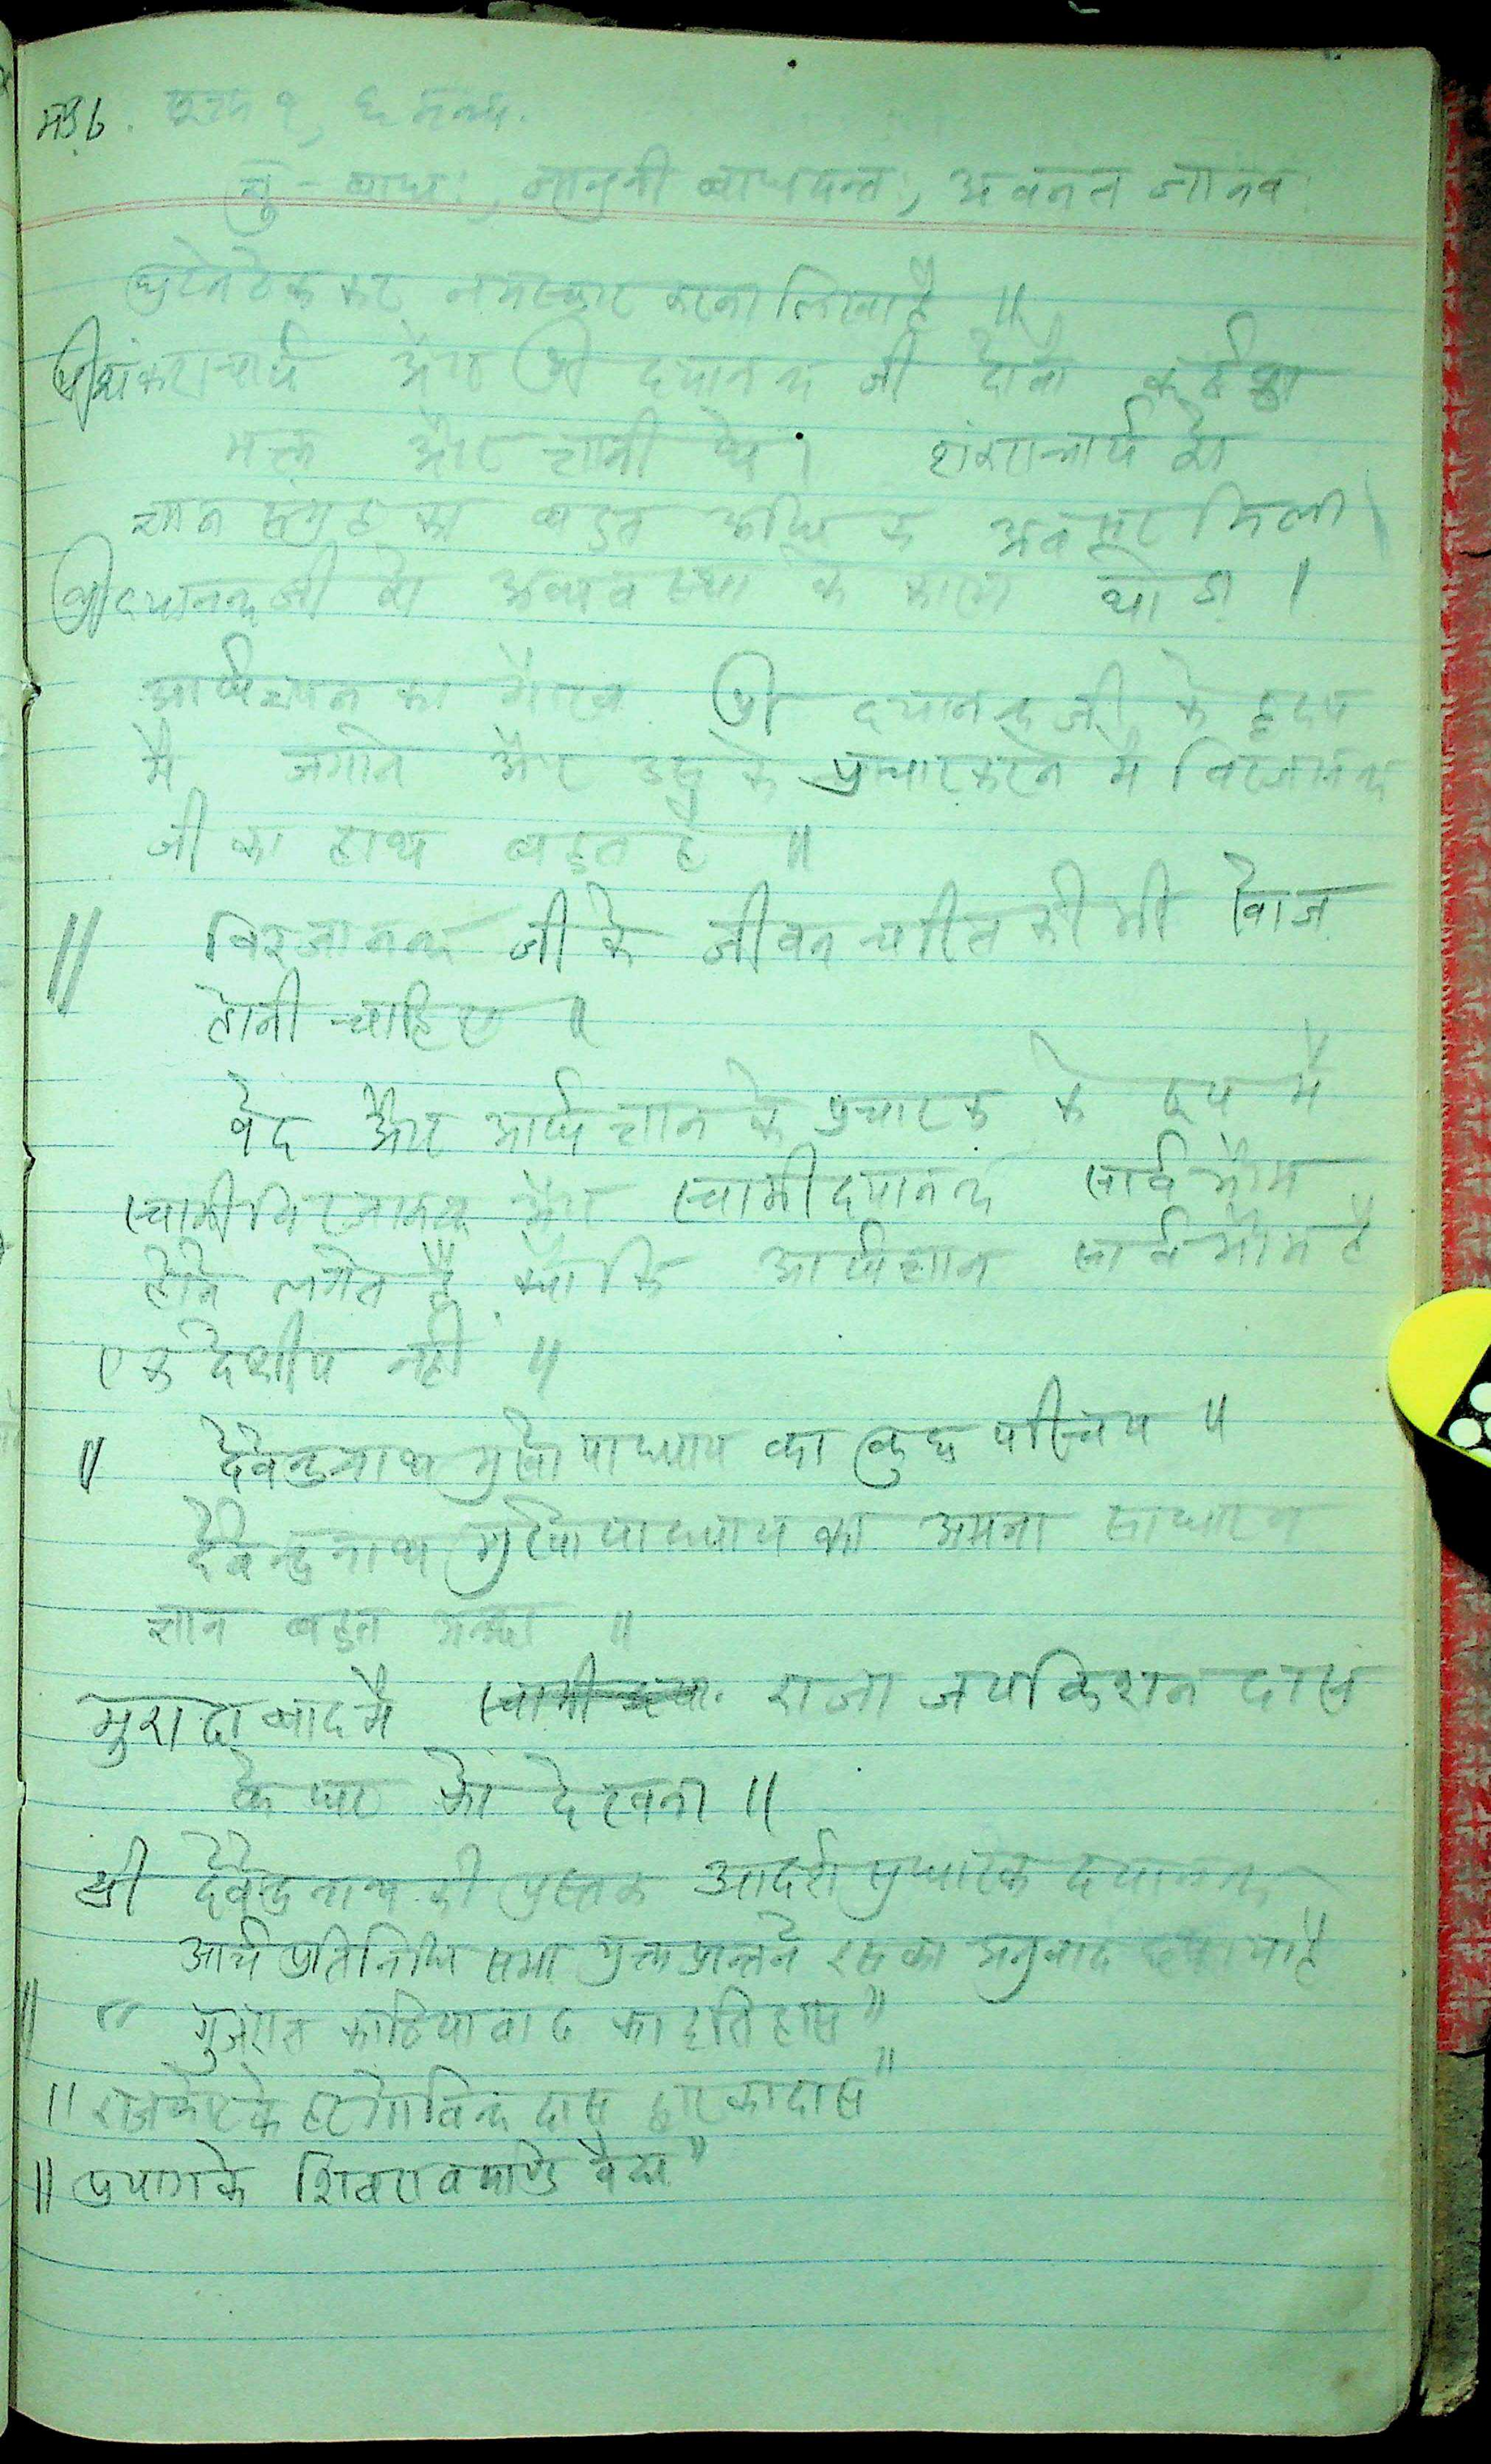 मं० ६. सूक्त १, ६ मन्त्र.
जानुनी बाधयन्तः,
घुटने टेक कर नमस्कार करना लिखा है ॥
श्री शंकराचार्य और श्री दयानन्द जी दोनों
भक्त और ज्ञानी थे। शंकराचार्य को
ज्ञान संग्रह का बहुत अवसर मिला
श्री दयानन्द जी को के कारण थोड़ा।
आर्षज्ञान का गौरव श्री दयानन्द जी के हृदय
मे जगाने और उस के प्रचार करने मे विरजानन्द
जी का हाथ बहुत है ॥
॥ विरजानन्द जी के जीवन चरित की भी खोज
होनी चाहिए ॥
वेद और आर्ष ज्ञान के प्रचारक के रूप में
स्वामी विरजानन्द और स्वामी दयानन्द सार्वभौम
होने लगते हैं क्योंकि आर्षज्ञान सार्वभौम है
एक देशीय नही ॥
॥ देवेन्द्रनाथ मुखोपाध्याय का कुछ परिचय ॥
देवेन्द्रनाथ मुखोपाध्याय का साधारण
ज्ञान बहुत अच्छा ॥
मुरादाबाद मै राजा जयकिशन दास
के घर को देखना ॥
श्री देवेन्द्रनाथ की पुस्तक आदर्श सुधारक दयानन्द
आर्य प्रतिनिधि सभा युक्त प्रान्तने इसका अनुवाद छपाया है
॥ " गुजरात काठियावाड का इतिहास"
॥ राजकोट के हरगोविन्द दास द्वारकादास"
॥ प्रयाग के शिवराव पाण्डे वैद्य"